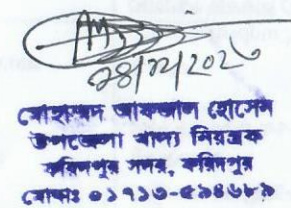 মোহাম্মদ আফজাল হোসেন
উপজেলা খাদ্য নিয়ন্ত্রক
ফরিদপুর সদর, ফরিদপুর
মোবাঃ ০১৭১৬-৫৯৪৬৮৯